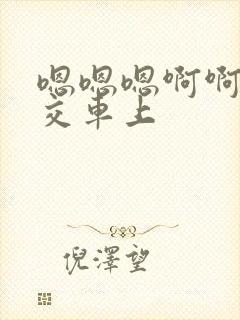 嗯嗯嗯啊啊
交车上
倪澤望